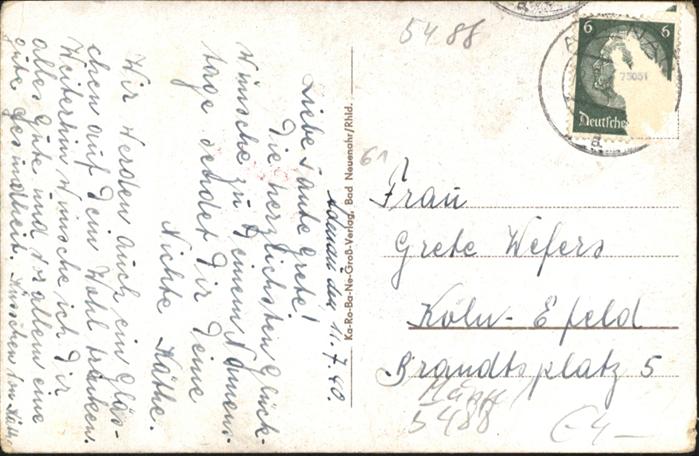 Adenau den 11.7.40
Liebe Tante Grete!
Die herzlichsten Glück-
wünsche zu Deinem Namens-
tage sendet Dir Deine
Nichte Käthe.
Wir werden auch ein Gläs-
chen auf Dein Wohl trinken.
Weiterhin wünsche ich Dir
alles Gute und vor allem eine
gute Gesundheit.
Ka-Ro-Ba-Ne-Groß-Verlag, Bad Neuenahr/Rhld.
5488
6 6
75051
Deutsche
61
Frau
Grete Wefers
Köln-Efeld
Brandtsplatz 5
5488